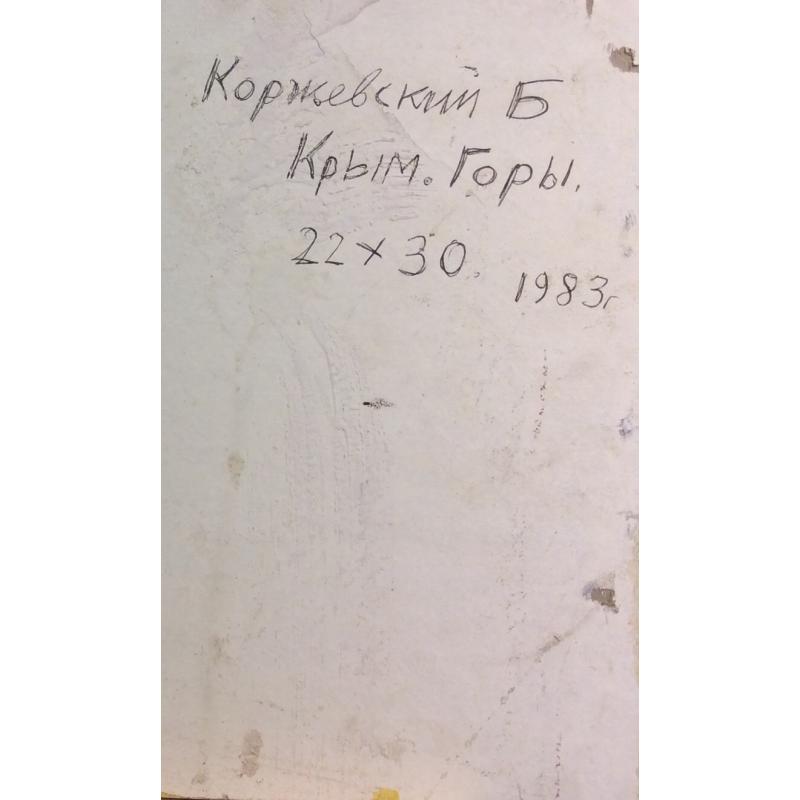 Коржевский Б
Крым. Горы.
22×30.
1983г